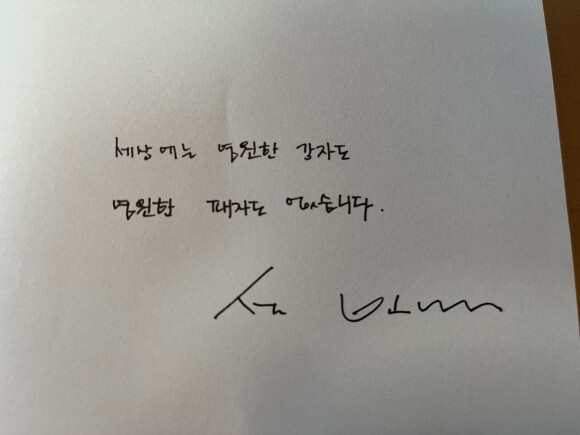 세상에는 영원한 강자도
영원한 패자도 없습니다.